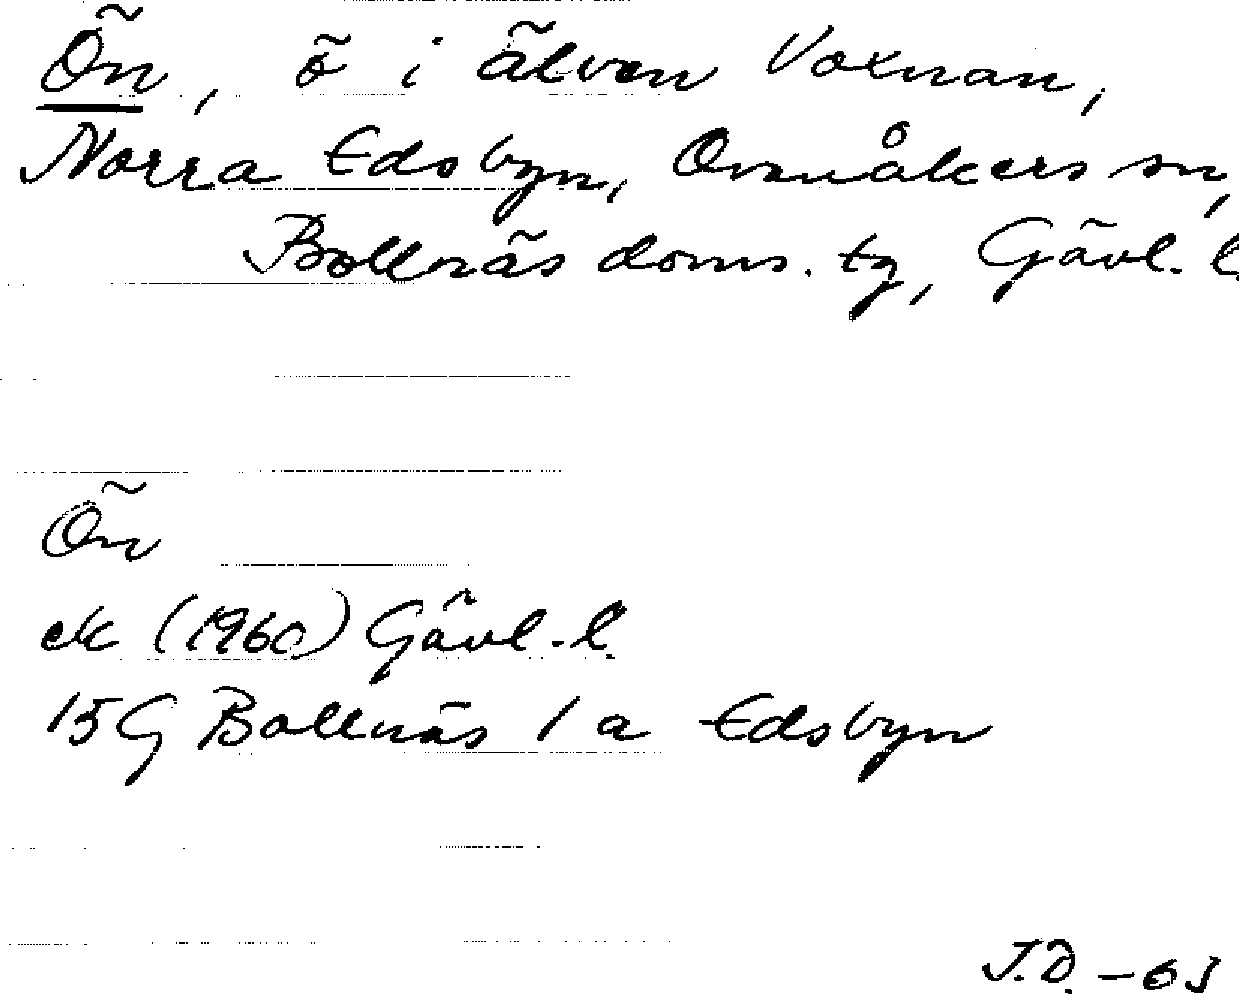 Ön, ö i älven Voxnan,
Norra Edsbyn, Ovanåkers sn,
Bollnäs doms. tg, Gävl. l.
Ön
ek (1960) Gävl. l.
15G Bollnäs 1 a Edsbyn
J.D. -63